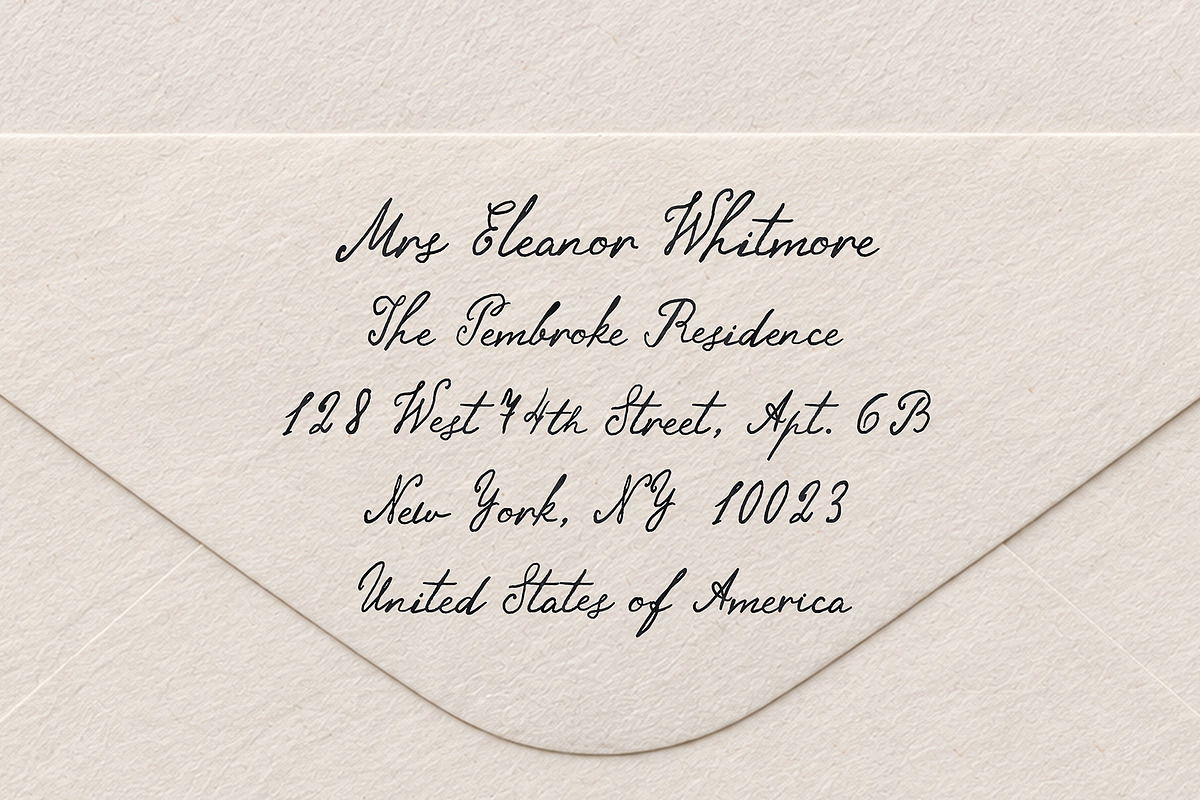 Mrs Eleanor Whitmore
The Pembroke Residence
128 West 74th Street, Apt. 6B
New York, NY 10023
United States of America